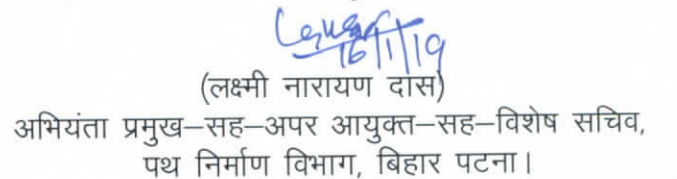 16/1/19
(लक्ष्मी नारायण दास)
अभियंता प्रमुख–सह–अपर आयुक्त–सह–विशेष सचिव,
पथ निर्माण विभाग, बिहार पटना।